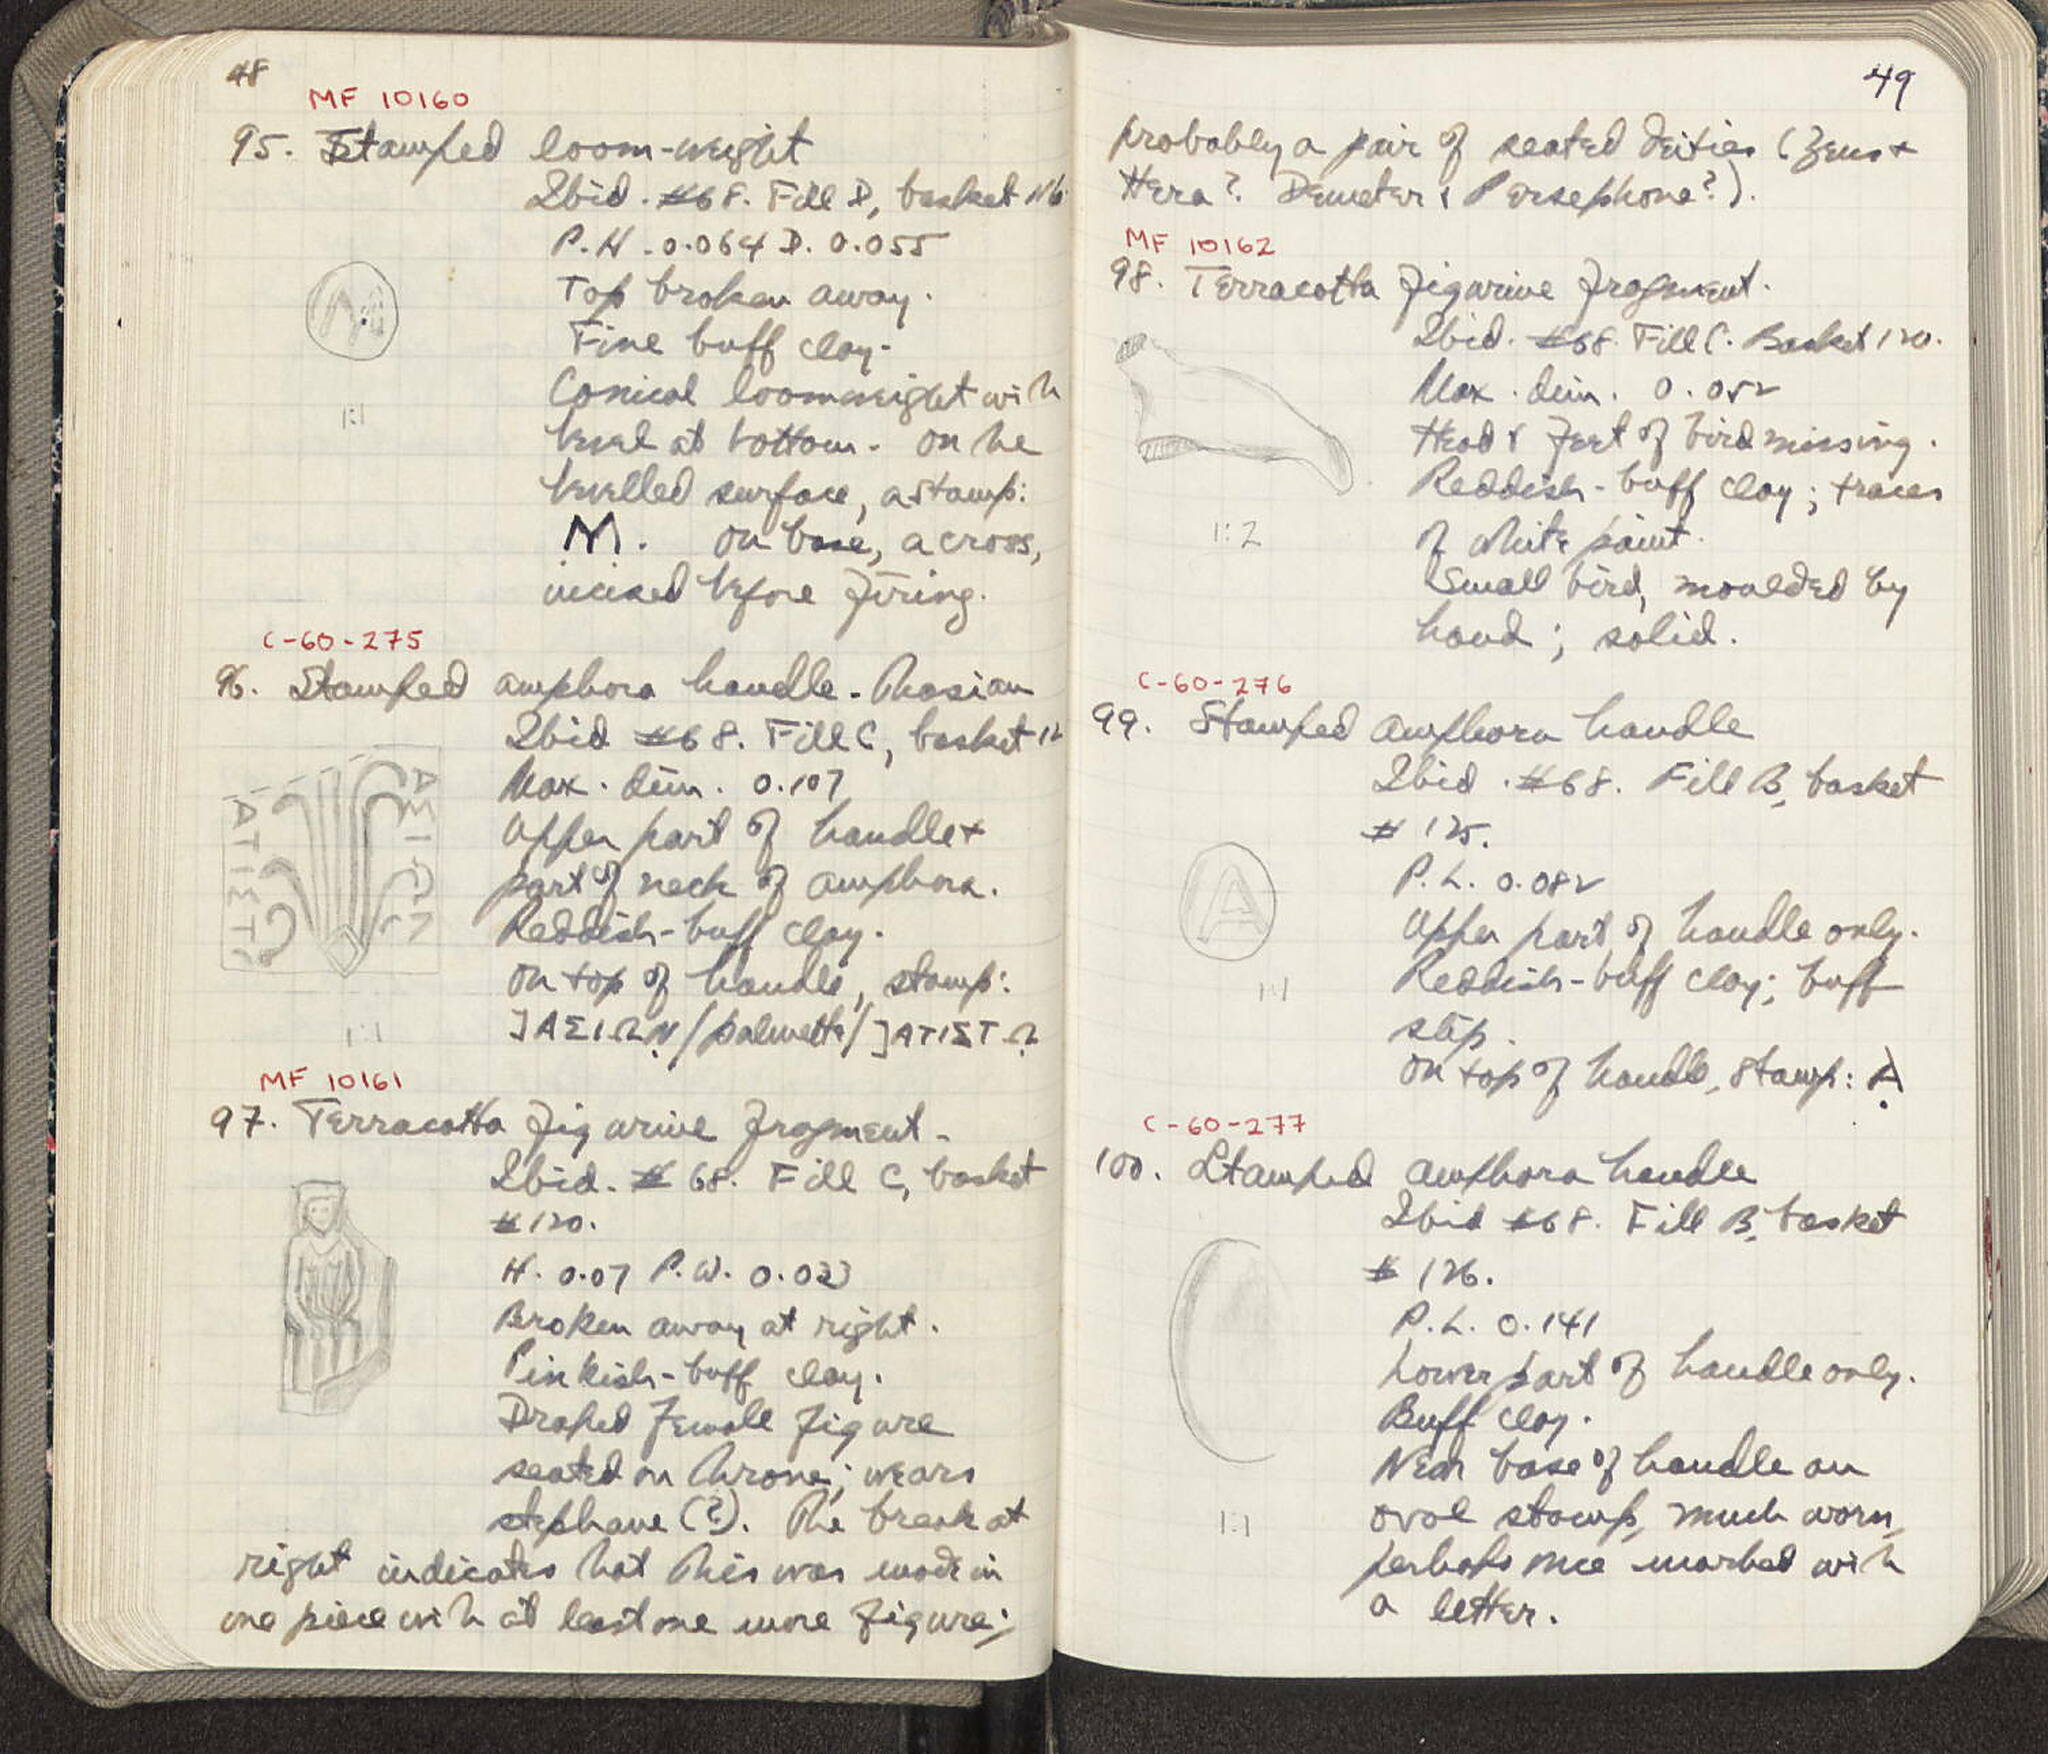 48
MF 10160
95. Stamped loom-weight
Ibid. #68. Fill D, basket 116
P.H. 0.064 D. 0.055
Top broken away.
Fine buff clay.
Conical loomweight with
bevel at bottom. On the
bevelled surface, a stamp:
M. On base, a cross,
incised before firing.
1:1
C-60-275
96. Stamped amphora handle - Thasian
Ibid #68. Fill C, basket 12
Max. dim. 0.107
Upper part of handle +
part of neck of amphora.
Reddish-buff clay.
On top of handle, stamp:
]ΑΣΙΩΝ/palmette/]ΑΤΙΣΤΩ
1:1
MF 10161
97. Terracotta figurine fragment.
Ibid. #68. Fill C, basket
#120.
H. 0.07 P.W. 0.033
Broken away at right.
Pinkish-buff clay.
Draped female figure
seated on throne; wears
stephane (?). The break at
right indicates that this was made in
one piece with at least one more figure;
49
probably a pair of seated deities (Zeus +
Hera? Demeter & Persephone?).
MF 10162
98. Terracotta figurine fragment.
Ibid. #68. Fill C. Basket 120.
Max. dim. 0.052
Head & feet of bird missing.
Reddish-buff clay; traces
of white paint.
Small bird, moulded by
hand; solid.
1:2
C-60-276
99. Stamped amphora handle
Ibid. #68. Fill B, basket
#125.
P.L. 0.082
Upper part of handle only.
Reddish-buff clay; buff
slip.
On top of handle, stamp: A
A
1:1
C-60-277
100. Stamped amphora handle
Ibid #68. Fill B, basket
#126.
P.L. 0.141
Lower part of handle only.
Buff clay.
Near base of handle an
oval stamp, much worn,
perhaps once marked with
a letter.
1:1